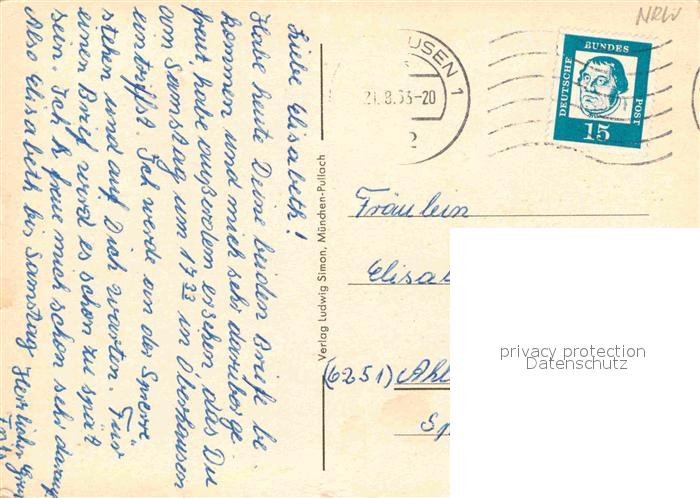 Liebe Elisabeth!
Habe heute Deine beiden Briefe be
kommen und mich sehr darüber ge
freut, habe außerdem ersehen, das Du
am Samstag um 17 33 in Oberhausen
eintriffst. Ich werde an der Sperre
stehen und auf Dich warten. Für
einen Brief wird es schon zu spät
sein. Ich freue mich schon sehr darauf
Also Elisabeth bis Samstag Herzlichen
Verlag Ludwig Simon, München-Pullach
NRW
USEN 1
21.8.63-20
2
DEUTSCHE
BUNDES
POST
15
Fräulein
Elisab
(6251) Ahl
privacy protection
Datenschutz